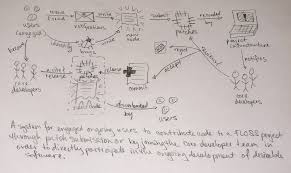 users
(engaged)
notifications
submit
patches
recorded by
project
infrastructure
reject
notifies
accept
core
developers
core
developers
release
commit
downloaded
by
users
A system for engaged ongoing users to contribute code to a FLOSS project
through patch submission or by joining the core developer team in
order to directly participate in the ongoing development of desirable
software.